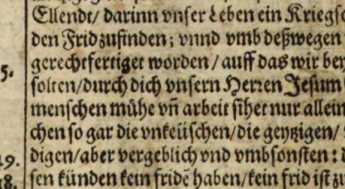 Ellendt/ darinn vnser Leben ein Kriegs
den Frid zufinden; vnnd vmb deßwegen
5. gerechtfertiget worden/ auff das wir bey
solten/durch dich vnsern Herren Jesum
menschen mühe vñ arbeit sihet nur allein
chen so gar die vnkeüschen/die geytzigen/
19. digen/aber vergeblich vnd vmbsonsten: d
18. sen künden kein fridē haben/kein frid ist zu